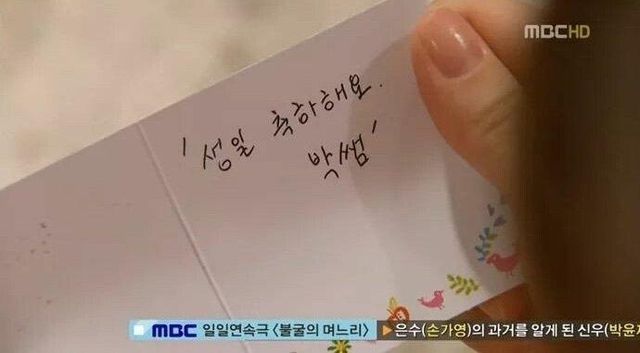 MBC HD
'생일 축하해요.
박쌤'
MBC 일일연속극 <불굴의 며느리> ▶ 은수(손가영)의 과거를 알게 된 신우(박윤재